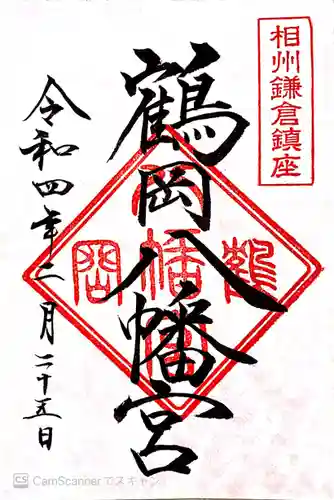 相州鎌倉鎮座
鶴岡八幡宮
令和四年二月二十五日
CS CamScannerでスキャン